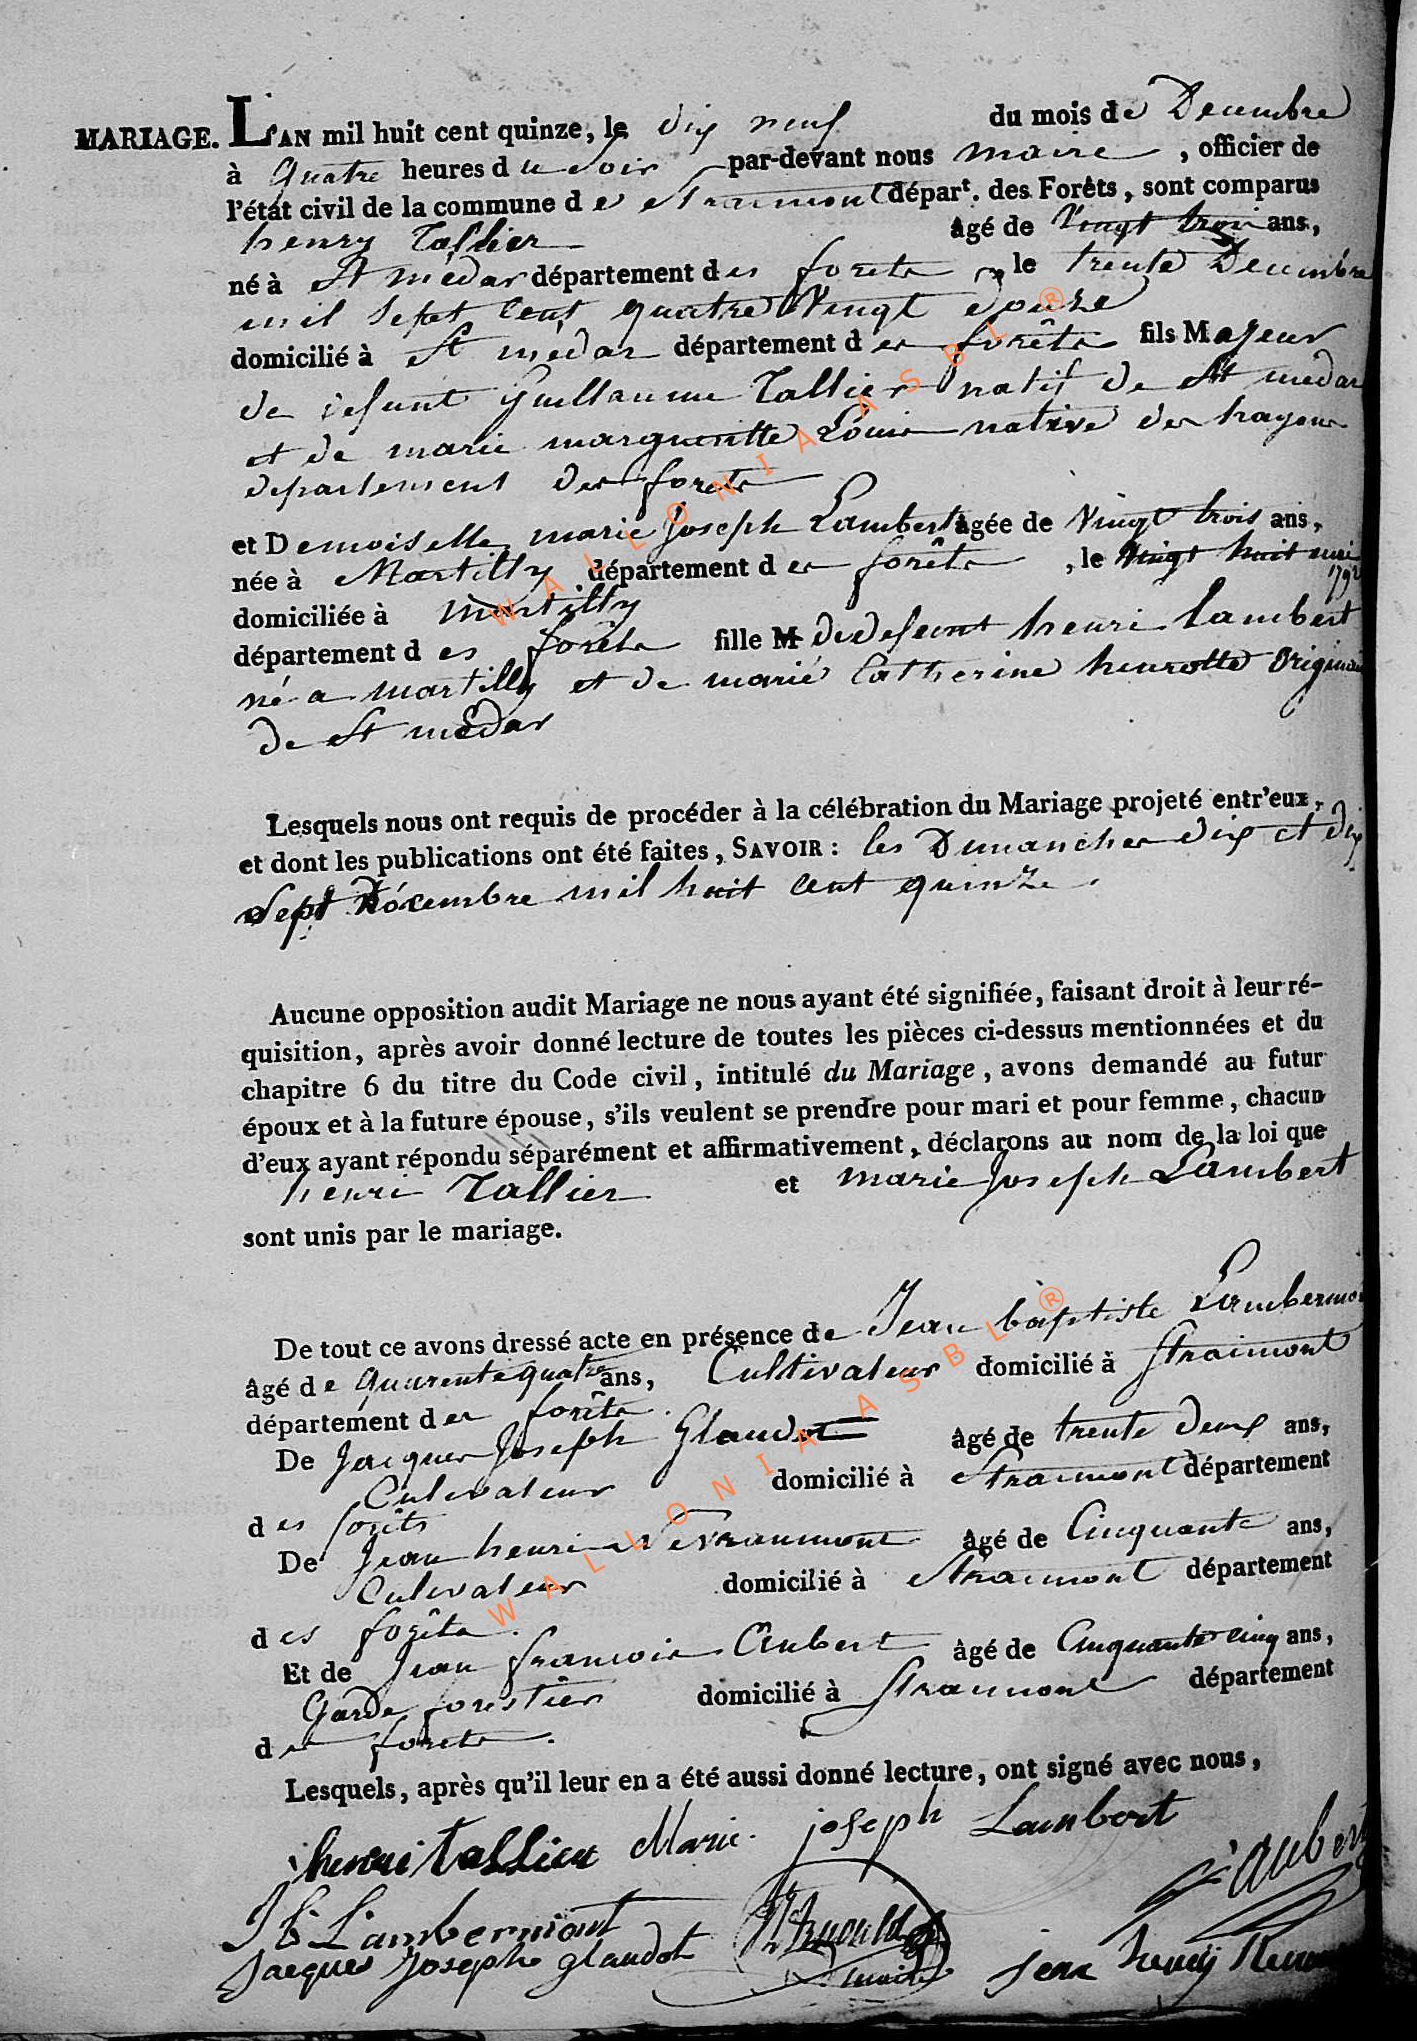 MARIAGE. L'AN mil huit cent quinze, le dix neuf du mois de Decembre
à Quatre heures du Soir par-devant nous maire, officier de
l'état civil de la commune de Straimont départ. des Forêts, sont comparus
henry Tallier âgé de Vingt trois ans,
né à St médar département des forets le trente Decembre
mil Sept Cent quatre Vingt douze
domicilié à St médar département des forêts fils Majeur
de defunt Guillaume Tallier natif de St médar
et de marie margueritte Louis native des hayons
departement des forets
et Demoiselle marie Joseph Lambert âgée de Vingt trois ans,
née à Martilly département des forêts, le Vingt huit mai
1792
domiciliée à Martilly
département des forêts fille M de defunt henri Lambert
né a martilly et de marie Catherine henrotte Origin
de St médar
Lesquels nous ont requis de procéder à la célébration du Mariage projeté entr'eux,
et dont les publications ont été faites, SAVOIR : les Dimanches dix et dix
Sept Décembre mil huit Cent quinze.
Aucune opposition audit Mariage ne nous ayant été signifiée, faisant droit à leur ré-
quisition, après avoir donné lecture de toutes les pièces ci-dessus mentionnées et du
chapitre 6 du titre du Code civil, intitulé du Mariage, avons demandé au futur
époux et à la future épouse, s'ils veulent se prendre pour mari et pour femme, chacun
d'eux ayant répondu séparément et affirmativement, déclarons au nom de la loi que
henri Tallier et marie Joseph Lambert
sont unis par le mariage.
De tout ce avons dressé acte en présence de Jean baptiste Lambermo
âgé de Quarente quatre ans, Cultivateur domicilié à Straimont
département des forêts.
De Jacques Joseph Glaudot âgé de trente deux ans,
Culivateur domicilié à Straimont département
des forêts
De Jean henri âgé de Cinquante ans,
Culivateur domicilié à Straimont département
des forêts.
Et de Jean francois Aubert âgé de Cinquante cinq ans,
Garde forestier domicilié à Straimont département
des forets.
Lesquels, après qu'il leur en a été aussi donné lecture, ont signé avec nous,
henri tallier Marie joseph Lambert
aubert
J b Lambermont
Jacques Joseph glaudot maire jean henrij
WALLONIA ASBL ®
WALLONIA ASBL ®